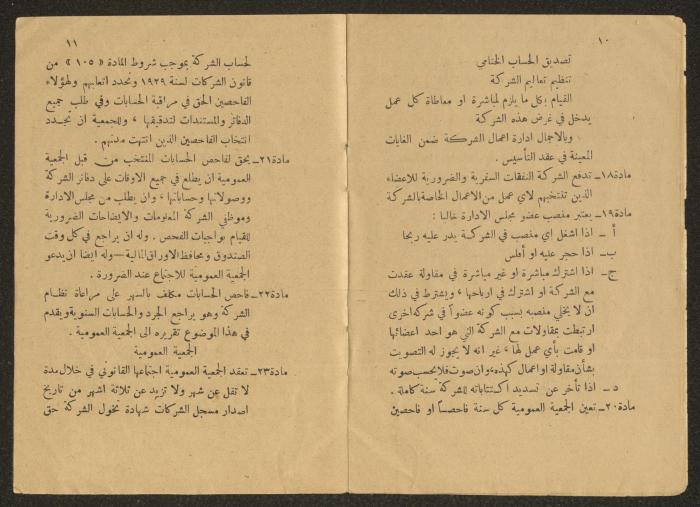 ١٠
تصديق الحساب الختامي
تنظيم تعاليم الشركة
القيام بكل ما يلزم لمباشرة او معاطاة كل عمل
يدخل في غرض هذه الشركة
وبالاجمال ادارة اعمال الشركة ضمن الغايات
المعينة في عقد التأسيس .
مادة١٨ـ تدفع الشركة النفقات السفرية والضرورية للاعضاء
الذين تنتخبهم لاي عمل من الاعمال الخاصة بالشركة
مادة١٩ـ يعتبر منصب عضو مجلس الادارة خاليا :
أ ـ اذا اشغل اي منصب في الشركة يدر عليه ربحا
ب ـ اذا حجر عليه او أفلس
ج ـ اذا اشترك مباشرة او غير مباشرة في مقاولة عقدت
مع الشركة او اشترك في ارباحها ، ويشترط في ذلك
ان لا يخلي منصبه بسبب كونه عضواً في شركة اخرى
ارتبطت بمقاولات مع الشركة التي هو احد اعضائها
او قامت بأي عمل لها ، غير انه لا يجوز له التصويت
بشأن مقاولة او اعمال كهذه، وان صوت فلا يحسب صوته
د ـ اذا تأخر عن تسديد اكتتاباته للشركة سنة كاملة .
مادة٢٠ـ تعين الجمعية العمومية كل سنة فاحصاً او فاحصين
١١
لحساب الشركة بموجب شروط المادة « ١٠٥ » من
قانون الشركات لسنة ١٩٢٩ وتحدد اتعابهم ولهؤلاء
الفاحصين الحق في مراقبة الحسابات وفي طلب جميع
الدفاتر والمستندات لتدقيقها ، وللجمعية ان تجدد
انتخاب الفاحصين الذين انتهت مدتهم .
مادة٢١ـ يحق لفاحص الحسابات المنتخب من قبل الجمعية
العمومية ان يطلع في جميع الاوقات على دفاتر الشركة
ووصولاتها وحساباتها ، وان يطلب من مجلس الادارة
وموظفي الشركة المعلومات والايضاحات الضرورية
للقيام بواجبات الفحص . وله ان يراجع في كل وقت
الصندوق ومحافظ الاوراق المالية ـ وله ايضا ان يدعو
الجمعية العمومية للاجتماع عند الضرورة .
مادة٢٢ـ فاحص الحسابات مكلف بالسهر على مراعاة نظام
الشركة وهو يراجع الجرد والحسابات السنوية ويقدم
في هذا الموضوع تقريره الى الجمعية العمومية .
الجمعية العمومية
مادة٢٣ـ تعقد الجمعية العمومية اجتماعها القانوني في خلال مدة
لا تقل عن شهر ولا تزيد عن ثلاثة اشهر من تاريخ
اصدار مسجل الشركات شهادة تخول الشركة حق